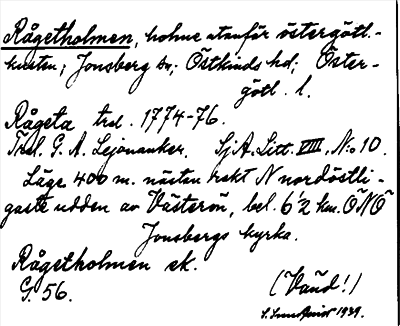 Rågetholmen, holme utanför östergötl.-
kusten; Jonsberg sn; Östkinds hd; Öster-
götl. l.
Rågeta trol. 1774-76.
Trol. G. A. Lejonanker. SjA. Litt. VIII, No 10.
Läge 400 m. nästan rakt N nordöstli-
gaste udden av Västerön, bel. 6½ km. ÖNÖ
Jonsbergs kyrka.
Rågetholmen ek.
G. 56.
(Vaud!)
1939.